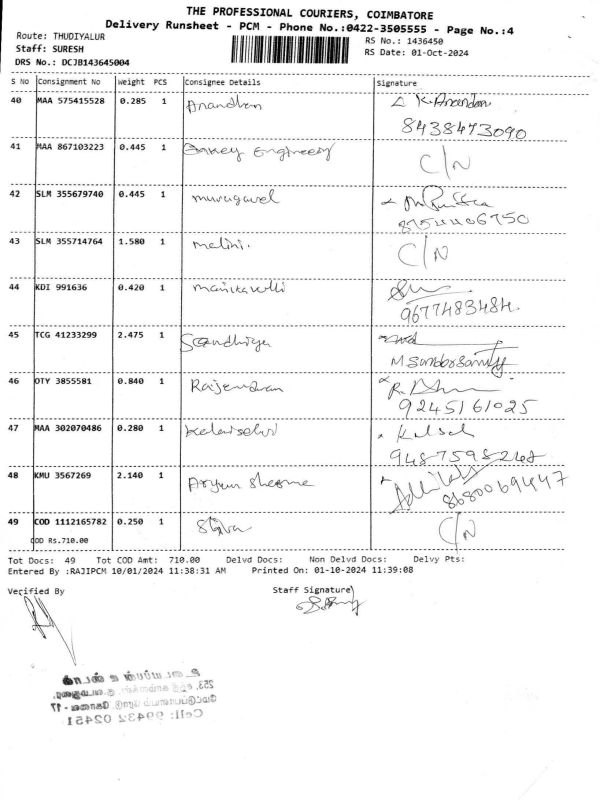 THE PROFESSIONAL COURIERS, COIMBATORE
Delivery Runsheet - PCM - Phone No.:0422-3505555 - Page No.:4
Route: THUDIYALUR
RS No.: 1436450
Staff: SURESH
RS Date: 01-Oct-2024
DRS No.: DCJB143645004
S No Consignment No Weight PCS Consignee Details Signature
40 MAA 575415528 0.285 1 Anandhan K.Anandan
8438473090
41 MAA 867103223 0.445 1 Engineery C/N
42 SLM 355679740 0.445 1 murugavel
8754406750
43 SLM 355714764 1.580 1 malini. C/N
44 KDI 991636 0.420 1 manikavelli
9677483484
45 TCG 41233299 2.475 1 Sandhiya
46 OTY 3855581 0.840 1 Rajendran
9245161025
47 MAA 302070486 0.280 1 Kalaiselvi
9487598248
48 KMU 3567269 2.140 1 Aryun Sharma
8680069447
49 COD 1112165782 0.250 1 Shiva C/N
COD Rs.710.00
Tot Docs: 49 Tot COD Amt: 710.00 Delvd Docs: Non Delvd Docs: Delvy Pts:
Entered By :RAJIPCM 10/01/2024 11:38:31 AM Printed On: 01-10-2024 11:39:08
Verified By Staff Signature
Cell: 99432 02451